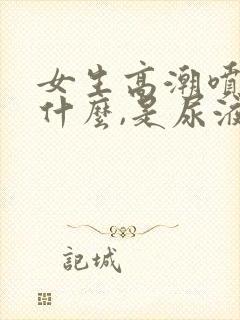 女生高潮噴
什麼,是尿液
記城